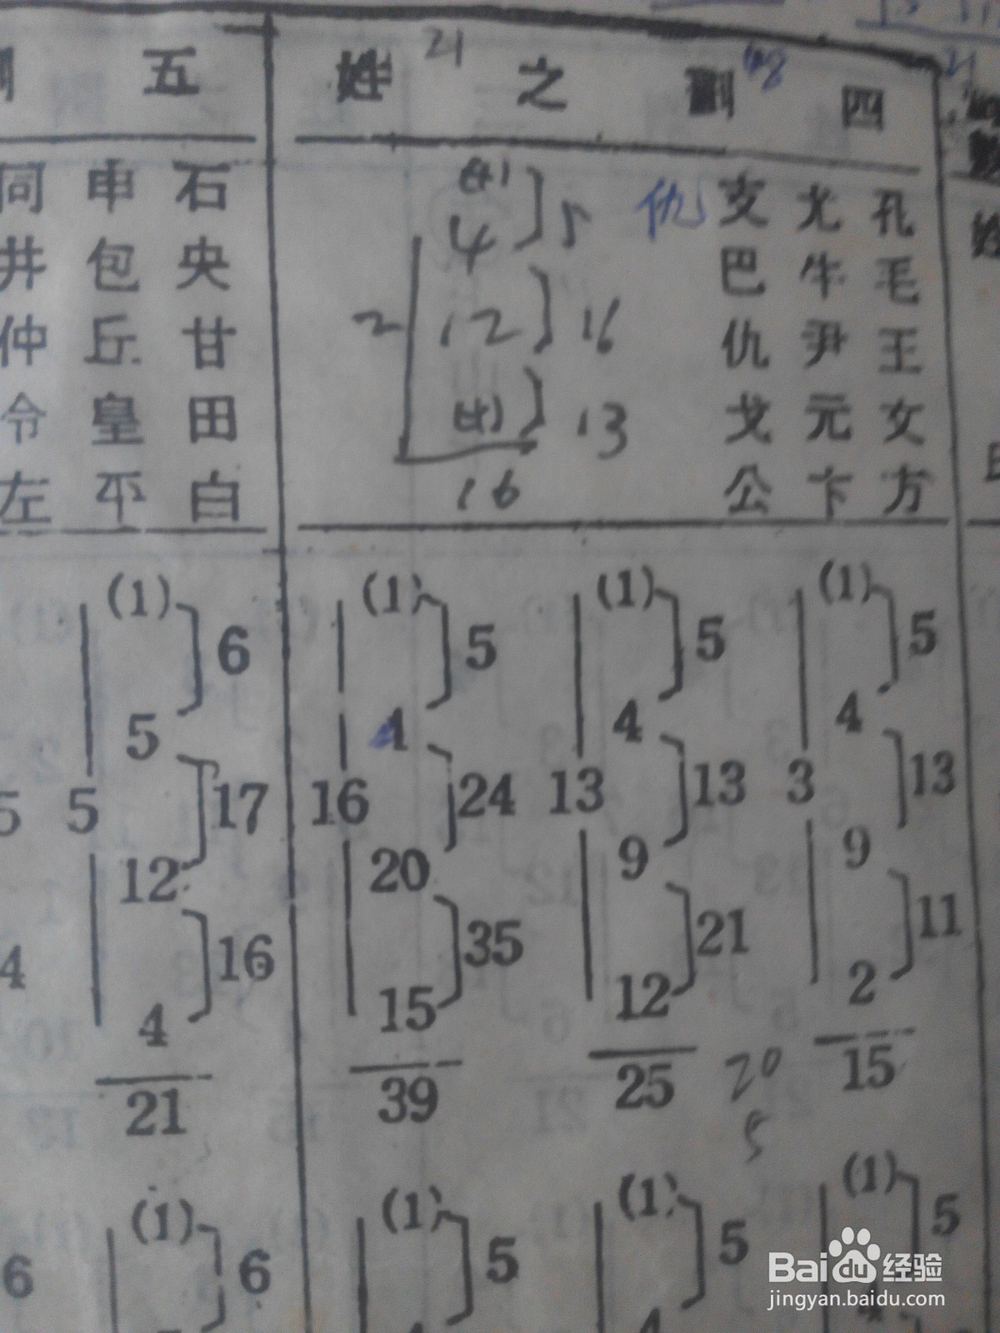 五
姓 21 之 劃 四
石 申 同
央 包 井
甘 丘 仲
田 皇 令
白 平 左
仇 支 尤 孔
巴 牛 毛
仇 尹 王
戈 元 女
公 卞 方
(+1) 5
4
2 12 16
(+1) 13
16
(1) 6
5
5 17
12
16
4
21
(1) 5
4
16 24
20
35
15
39
(1) 5
4
13 13
9
21
12
25
20
5
(1) 5
4
3 13
9
11
2
15
(1) 6
(1) 5
(1) 5
(1) 5
5
4
6
姓
Baidu 经验
jingyan.baidu.com